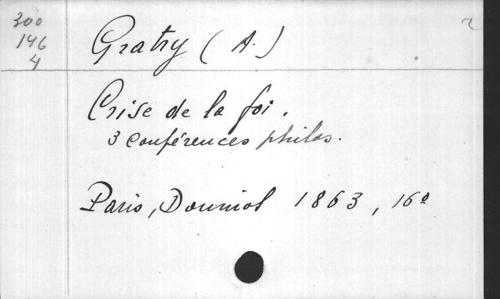 300
146
4
Gratry (A.)
Crise de la foi.
3 conférences philos.
Paris, Douniol 1863, 16º